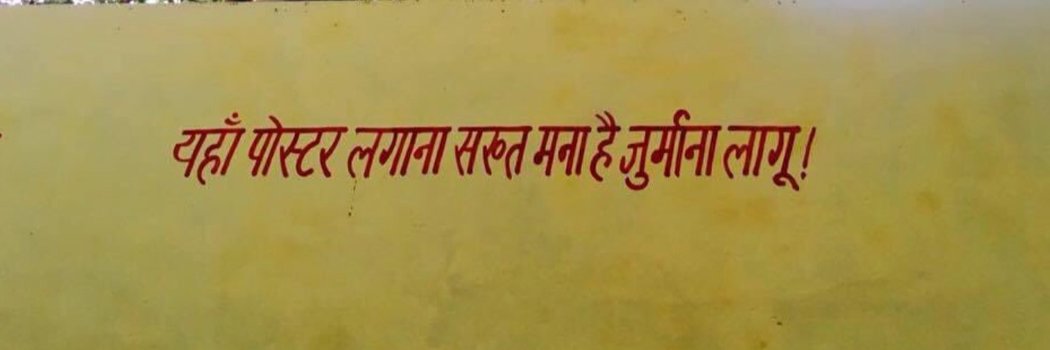 यहाँ पोस्टर लगाना सख्त मना है जुर्माना लागू!